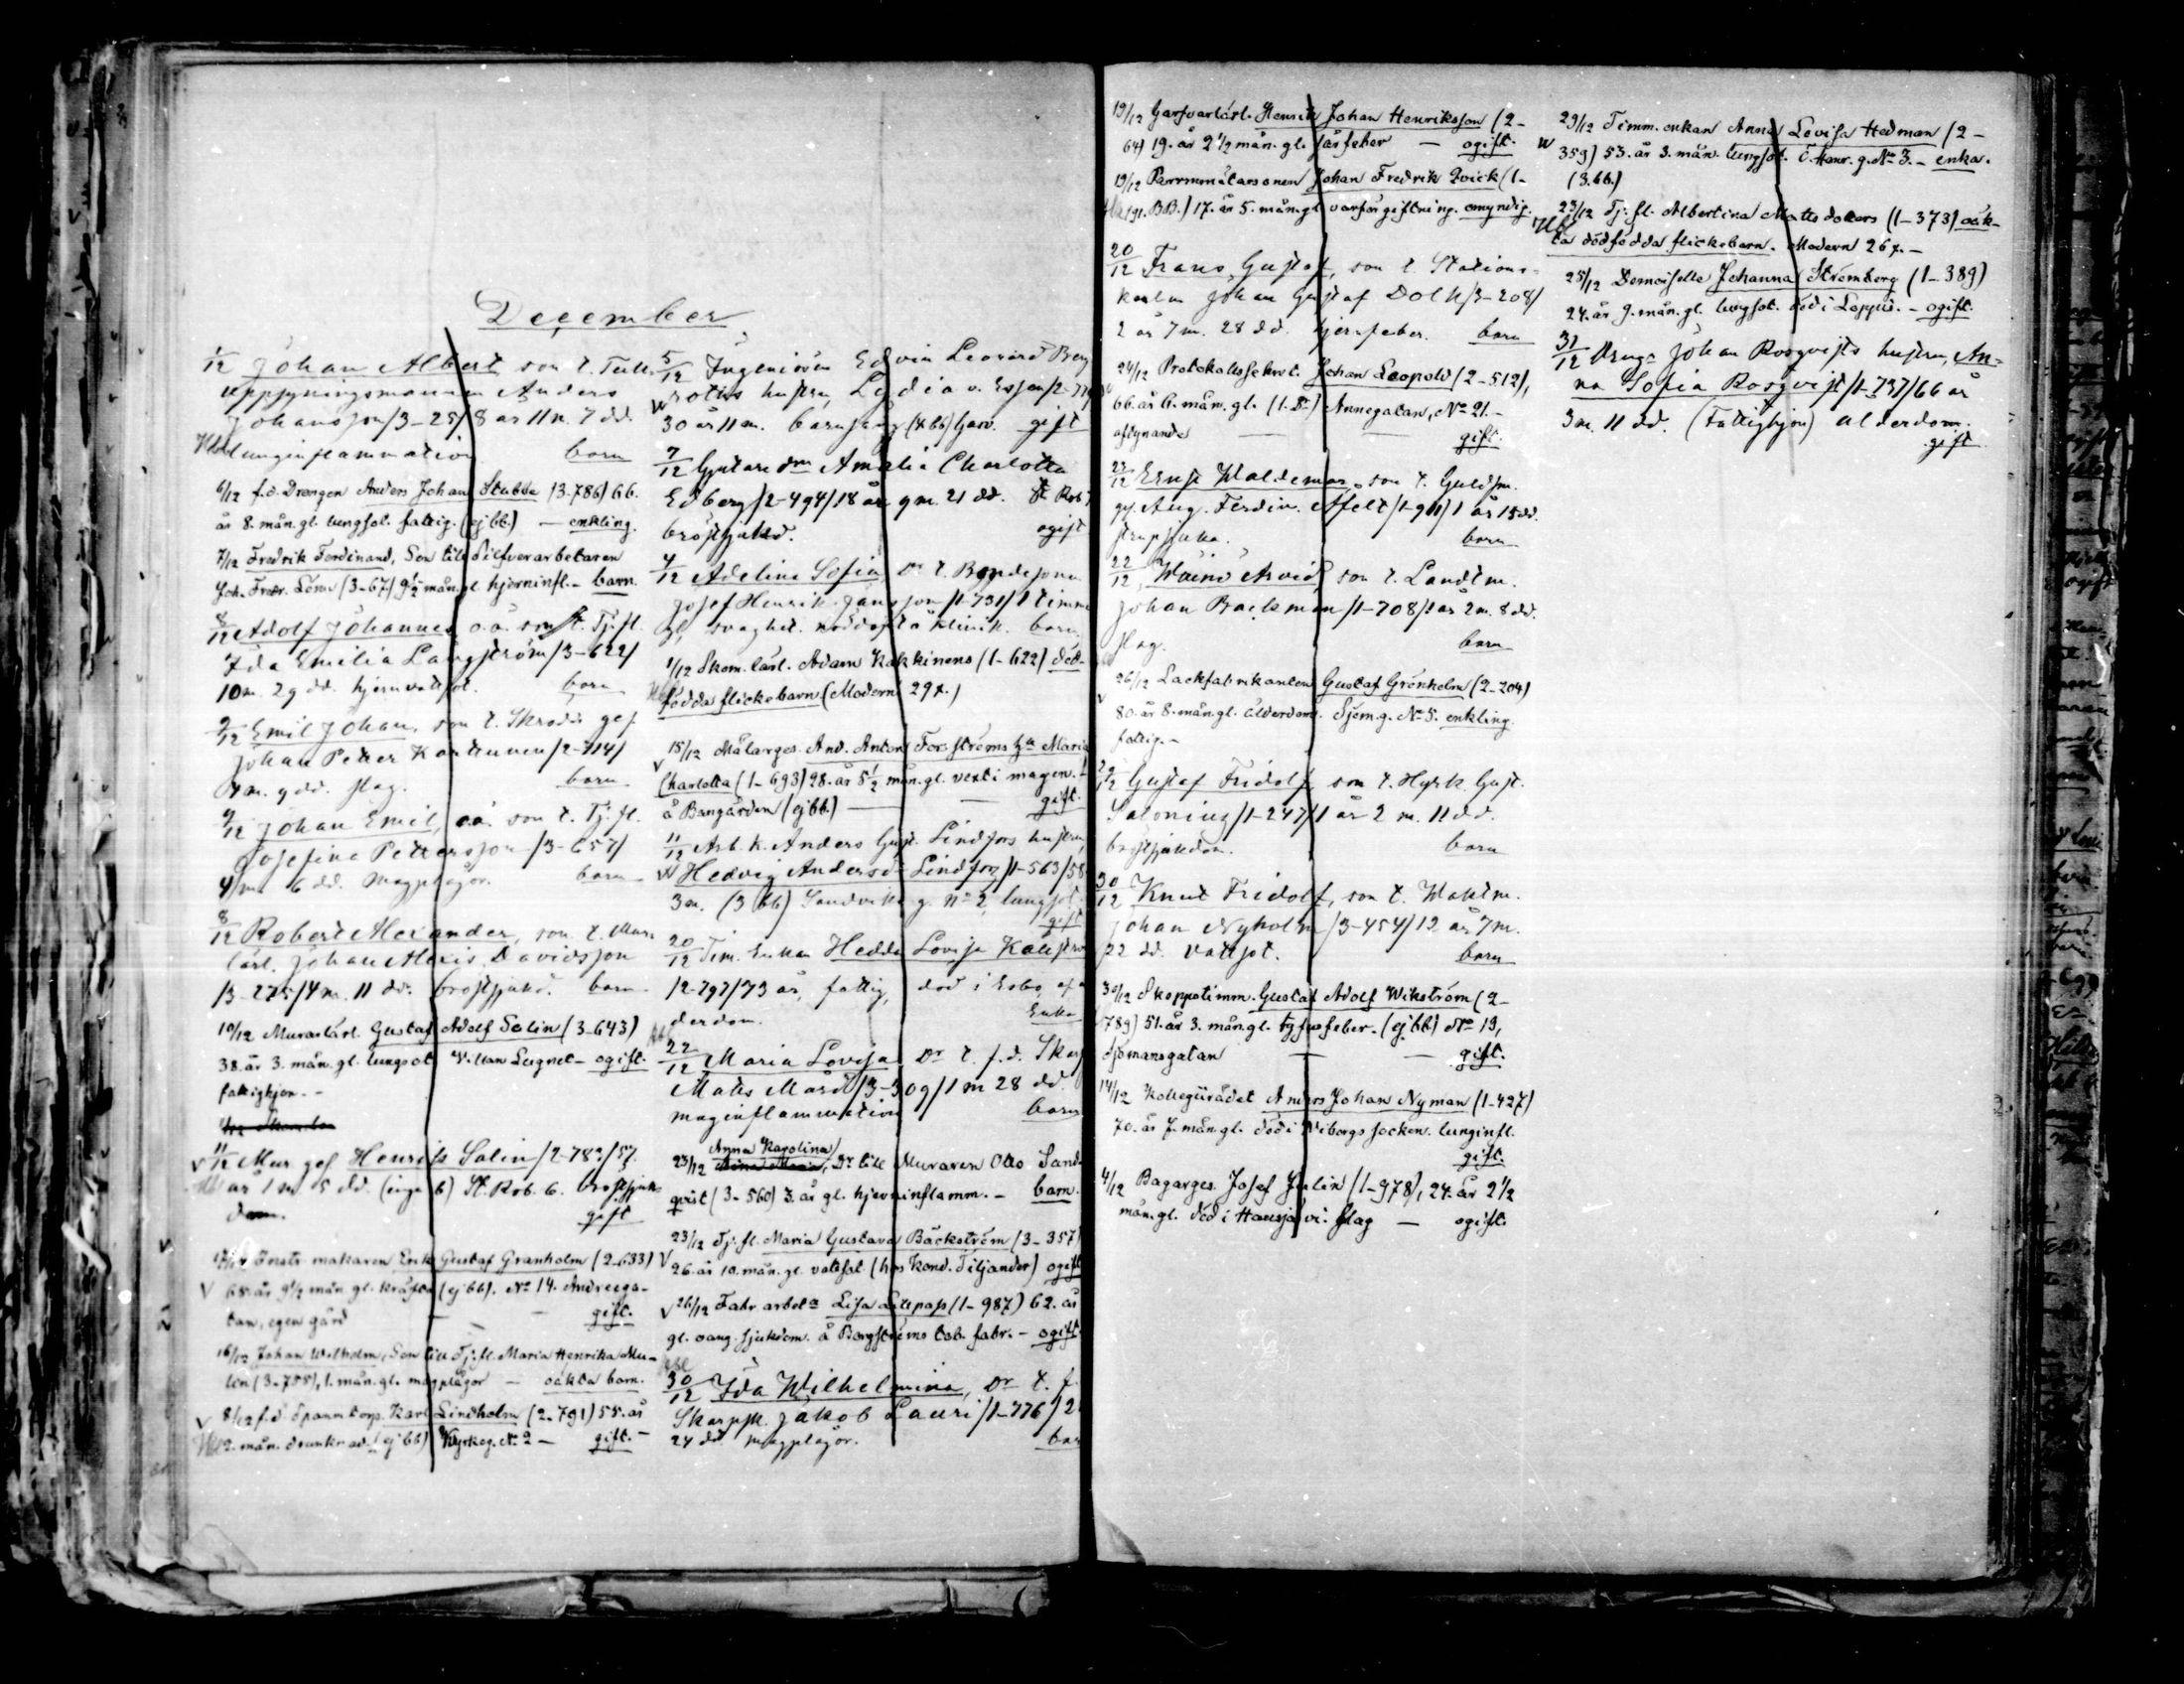 December
1/12 Johan Albert, son t. Tull
uppsyningsmannen Anders
Johansson /3-25/ 8 år 11 m. 7 dd.
lunginflammation barn
6/12 f.d. Drengen Anders Johan Stubbe (3-786) 66.
år 8. mån. gl. lungsot. fattig. (ej bb.) — enkling.
7/12 Fredrik Ferdinand, Son till Silfverarbetaren
Joh. Fredr. (3-67) 9 1/2 mån. gl. hjerninfl. - barn.
8/12 Adolf Johannes o.ä. son t. Tj. fl.
Ida Emilia Långström /3-622/
10 m. 29 dd. hjernvattsot. barn
9/12 Emil Johan, son t. Skrädd. ges.
Johan Petter Karttunen /2-714/
4 m. 9 dd. slag. barn
9/12 Johan Emil, o.ä. son t. Tj. fl.
Josefine Pettersson /3-657/
4 m. 6 dd. Magplågor. barn
8/12 Robert Alexander, son t. Mur.
lärl. Johan Alexis Davidsson
/3-275/ 4 m. 11 dd. bröstsjukd. barn
10/12 Murarlärl. Gustaf Adolf Salin (3-643)
38. år 3. mån. gl. lungsot Villan Lugnet - ogift.
fattighjon. -
11/12 Mur. ges. Henrik Salin /2-782/ 57
år 1 m 5 dd. (inga bb) St. Rob. 6. bröstsjuk
dom. gift
17/12 Instr. makaren Erik Gustaf Granholm (2-633)
65. år 9 1/2 mån. gl. kräfta (ej bb). No 14. Andreega-
tan, egen gård — gift.
16/12 Johan Wilhelm, Son till Tj. fl. Maria Henrika Mu-
lin (3-755), 1. mån. gl. magplågor — oäkta barn.
8/12 f.d. Spannkorp. Karl Lindholm (2-791) 55. år
2. mån. drunknad. (ej bb) Kyrkog. No 2 — gift. -
5/12 Ingeniören Edvin Leonard Berg
roths hustru, Lydia v. Essen /2-77
30 år 11 m. barnsäng (4 bb) Garv. gift
7/12 Gjutare dr Amalia Charlotta
Edberg /2-494/ 18 år 9 m. 21 dd. St Rob
bröstsjukd. ogift
4/12 Adelina Sofia Dr t. Bondesonen
Josef Henrik Jansson /1-731/ 1 timme
gl. svaghet. nöddöpt å klinik. barn
1/12 Skom. lärl. Adam Kakkinens (1-622) död-
födda flickebarn (Modern 29 f.)
15/12 Målarges. And. Anton Forsströms hu Maria
Charlotta (1-693) 28. år 5 1/2 mån. gl. vext i magen.
å Bangården (ej bb.) — gift.
11/12 Arb. k. Anders Gust. Lindfors hustru
Hedvig Andersd. Lindfors /1-563/ 58
3 m. (3 bb) Sandviks g. No 2, lungsot.
gift
20/12 Tim. Enkan Hedda Lovisa
/2-797/ 73 år, fattig, död i Esbo, af
derdom. Enka
22/12 Maria Lovisa Dr t. f.d. Skarp
Matts Mård /3-309/ 1 m 28 dd.
maginflammation barn
Anna Karolina
23/12 Dr till Muraren Otto Sand-
qvist (3-560) 3. år gl. hjerninflamm. - barn.
23/12 Tj. fl. Maria Gustava Bäckström (3-357)
26. år 10. mån. gl. vattsot. (hos Kond. Tiljander) ogift
26/12 Fabr. arbet. Lisa Lillpass (1-987) 62. år
gl. oang. sjukdom. å Borgströms tob. fabr. - ogift.
30/12 Ida Wilhelmina, Dr t. f.
Skarpsk. Jakob Lauri /1-776/ 2
24 dd. magplågor. barn
19/12 Garfvarlärl. Henrik Johan Henriksson (2-
64) 19. år 2 1/2 mån. gl. sårfeber — ogift.
19/12 Johan Fredrik Qvick (1-
191. BB.) 17. år 5. mån. gl. varförgiftning. omyndig.
20/12 Frans Gustaf, son t. Stations-
karln Johan Gustaf Dolk /3-208/
2 år 7 m. 28 dd. hjernfeber. barn
24/12 Protokollssekret. Johan Leopold (2-512),
66. år 6. mån. gl. Annegatan, No 21. -
aftynande — gift.
22/12 Ernst Waldemar, son t. Guldsm.
ges. Aug. Ferdin. Afelt /1-911/ 1 år 15 dd.
strupsjuka. barn
22/12, Wäinö Arvid, son t. Landtm.
Johan Backman /1-708/ 1 år 2 m. 8 dd.
slag. barn
26/12 Lackfabrikanten Gustaf Grönholm (2-204)
80. år 8. mån. gl. ålderdom. Sjöm. g. No 5. enkling.
fattig. -
Gustaf Fridolf, son t. Hyrk. Gust.
Salonius /1-247/ 1 år 2 m. 11 dd.
bröstsjukdom. barn
30/12 Knut Fridolf, son t. Waktm.
Johan Nyholm /3-454/ 12 år 7 m.
22 dd. vattsot. barn
30/12 Skeppstimm. Gustaf Adolf Wikström (2-
789) 51. år 3. mån. gl. tyfusfeber. (ej bb) No 19,
Sjömansgatan — gift.
14/12 Kollegiirådet Anders Johan Nyman (1-427)
70. år 7. mån. gl. död i Wiborgs socken. lunginfl.
gift.
4/12 Bagarges. Josef Julin (1-978), 24. år 2 1/2
mån. gl. död i Hausjärvi. slag — ogift.
29/12 Timm. enkan Anna Lovisa Hedman (2-
359) 53. år 3. mån. lungsot. Ö. Henr. g. No 3. - enka.
(3. bb.)
23/12 Tj. fl. Albertina Matts dotters (1-373) oäk-
ta dödfödda flickebarn. Modern 26 f. -
25/12 Demoiselle Johanna Strömberg (1-389)
24. år 9. mån. gl. lungsot. död i Loppis. - ogift.
31/12 Dräng Johan Rosqvists hustru, An-
na Sofia Rosqvist /1-737/ 66 år
3 m. 11 dd. (Fattighjon) ålderdom.
gift